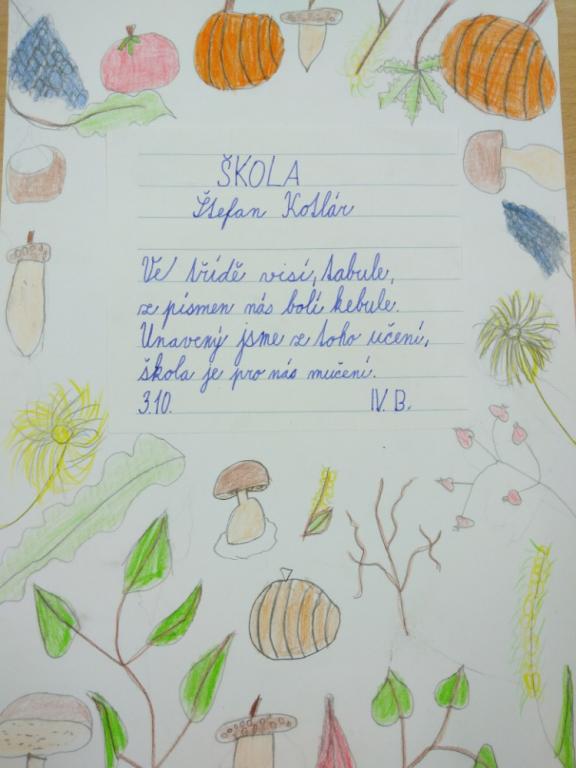 ŠKOLA
Štefan Kotlár
Ve třídě visí, tabule,
z písmen nás bolí kebule.
Unavený jsme z toho učení,
škola je pro nás mučení.
3.10. IV. B.